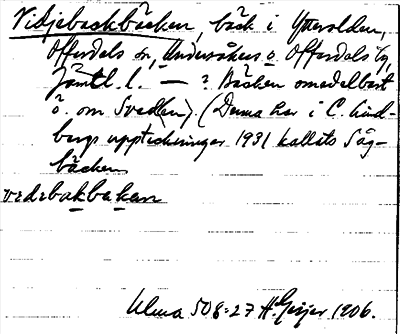 Vidjebackbäcken, bäck i Ytterolden,
Offerdals sn, Undersåkers o. Offerdals tg,
Jämtl. l. — ? Bäcken omedelbart
ö. om Sveden). (Denna har i C. Lind-
bergs uppteckningar 1931 kallats Såg-
bäcken
vedebakbeken
Ulma 508:27 H. Geijer 1906.